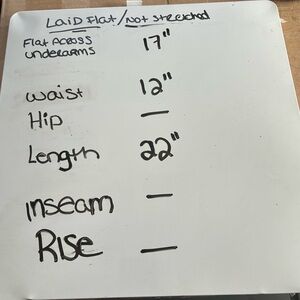 LaiD Flat/Not stretched
Flat Across 17"
underarms
waist 12"
Hip —
Length 22"
inseam —
Rise —